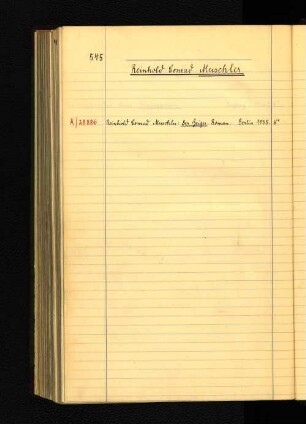 545
Reinhold Conrad Muschler
A/28886 Reinhold Conrad Muschler: Der Geiger. Roman. Berlin 1935. 8°